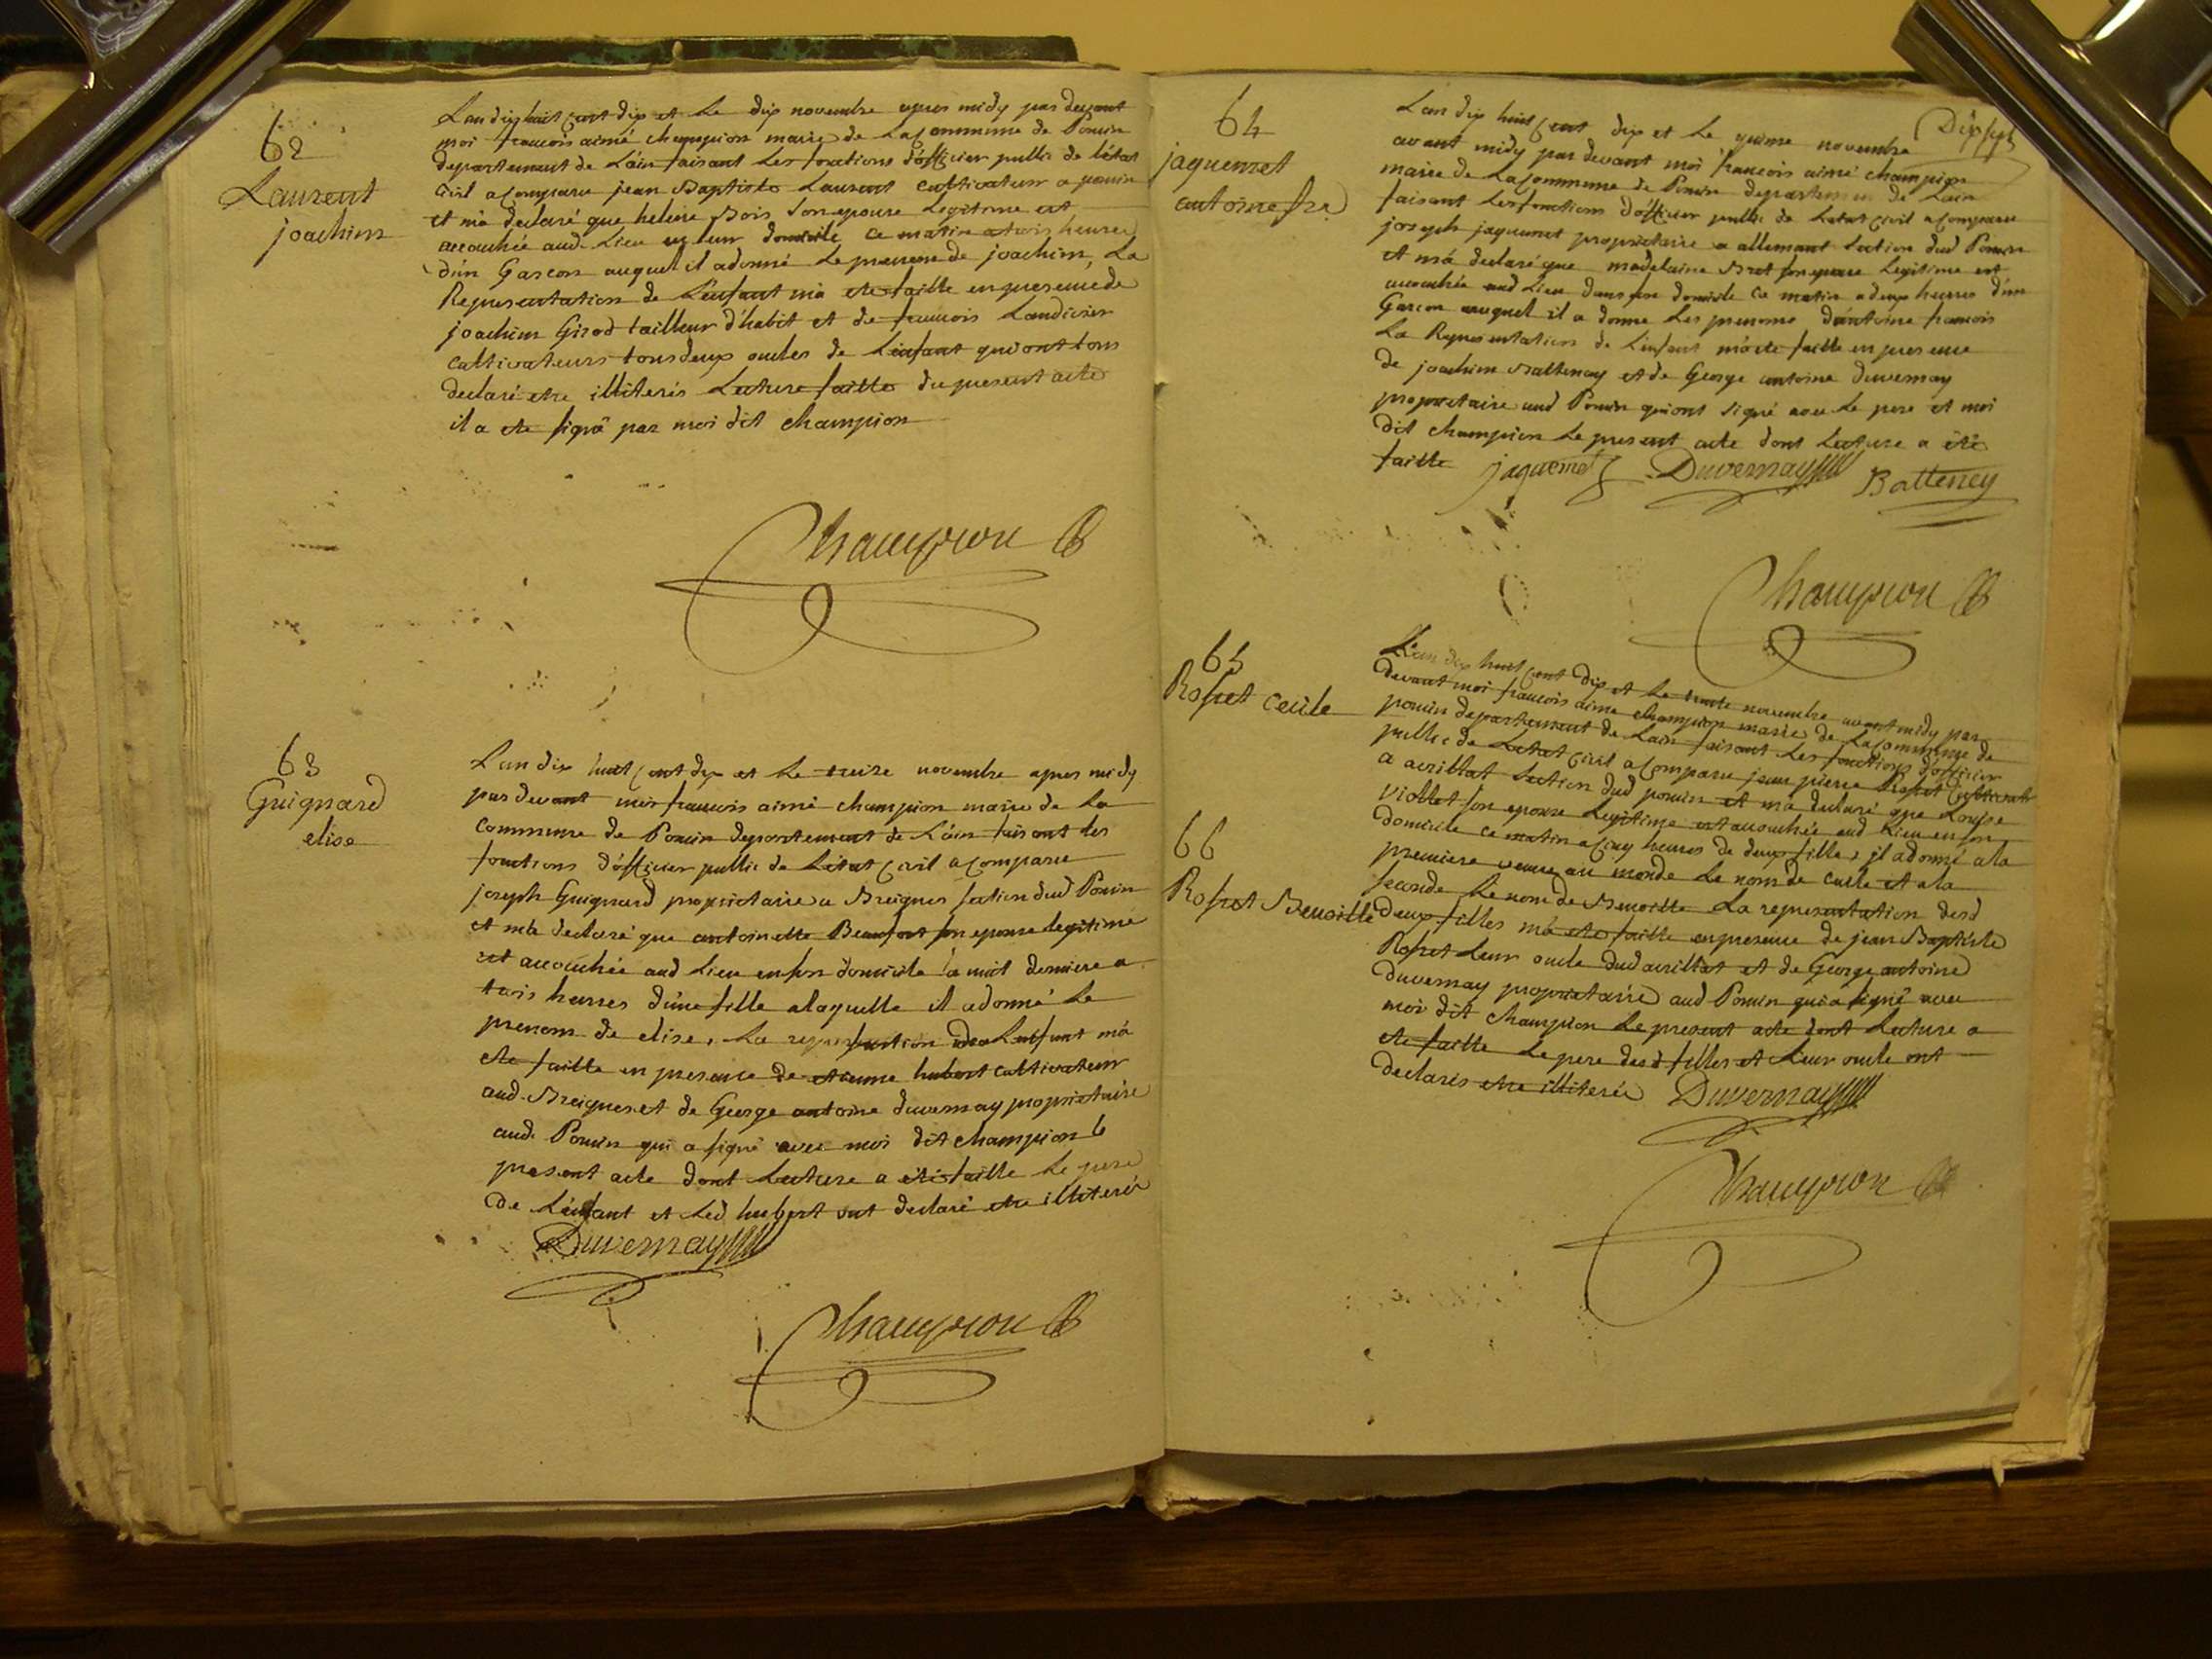 62
Laurent
joachim
Lan dix huit cent dix et Le dix novembre apres midy par devant
moi francois aimé champion maire de La Commune de Poncin
departement de L'ain faisant Les fonctions d'officier public de l'état
Civil a Comparu jean Baptiste Laurent cultivateur a poncin
et m'a declaré que heleine Bois son epouse Legitime est
accouchée aud. Lieu en leur domicile ce matin a trois heures
d'un Garcon auquel il a donné Le prenom de joachim, La
Representation de L'enfant m'a ete faitte en presence de
joachim Girod tailleur d'habit et de francois
cultivateurs tous deux oncles de L'enfant qui ont tous
declaré etre illiterés Lecture faitte du present acte
il a ete signé par moi dit champion
Champion
63
Guignard
elise
L'an dix huit Cent dix et Le treize novembre apres midy
par devant moi francois aimé champion maire de La
Commune de Poncin departement de L'ain faisant les
fonctions d'officier public de L'état Civil a Comparu
joseph Guignard proprietaire a Breignes section dud Poncin
et m'a declaré que antoinette Beaufort son epouse legitime
est accouchée aud Lieu en son domicile la nuit derniere a
trois heures d'une fille a laquelle il a donné Le
prenom de elise, La representation de L'enfant m'a
ete faitte en presence de etienne hubert cultivateur
aud. Breignes et de George antoine duvernay proprietaire
aud. Poncin qui a signé avec moi dit champion le
present acte dont Lecture a été faitte Le pere
de L'enfant et Led hubert ont declaré etre illiteré
Duvernay
Champion
64
jaquemet
antoine fra.
Dix sept
L'an dix huit Cent dix et Le quinze novembre
avant midy par devant moi francois aimé champion
maire de La Commune de Poncin departement de L'ain
faisant Les fonctions d'officier public de L'etat Civil a Comparu
joseph jaquemet proprietaire a allemant section dud Poncin
et m'a declaré que madelaine Bret son epouse Legitime est
accouchée aud Lieu dans son domicile ce matin a deux heures d'un
Garcon auquel il a donne Les prenoms d'antoine francois
La Representation de L'enfant m'a ete faitte en presence
de joachim Battenay et de George antoine duvernay
proprietaire aud Poncin qui ont signé avec Le pere et moi
dit champion Le present acte dont Lecture a été
faitte
jaquemet Duvernay Batteney
Champion
65
Rosset Cecile
66
Rosset Benoitte
L'an dix huit Cent dix et Le trente novembre avant midy par
devant moi francois aimé champion maire de La Commune de
poncin departement de L'ain faisant Les fonctions d'officier
public de L'etat Civil a Comparu jean pierre Rosset Cultivateur
a avrillat section dud poncin et m'a declaré que Louise
viollet son epouse Legitime est accouchée aud Lieu en son
domicile ce matin a Cinq heures de deux filles, il a donné a la
premiere venue au monde Le nom de Cecile et a la
seconde Le nom de Benoitte La representation desd
deux filles m'a ete faitte en presence de jean Baptiste
Rosset Leur oncle dud avrillat et de George antoine
duvernay proprietaire aud Poncin qui a signé avec
moi dit champion Le present acte dont Lecture a
ete faitte Le pere desd filles et Leur oncle ont
declarés etre illiterés
Duvernay
Champion